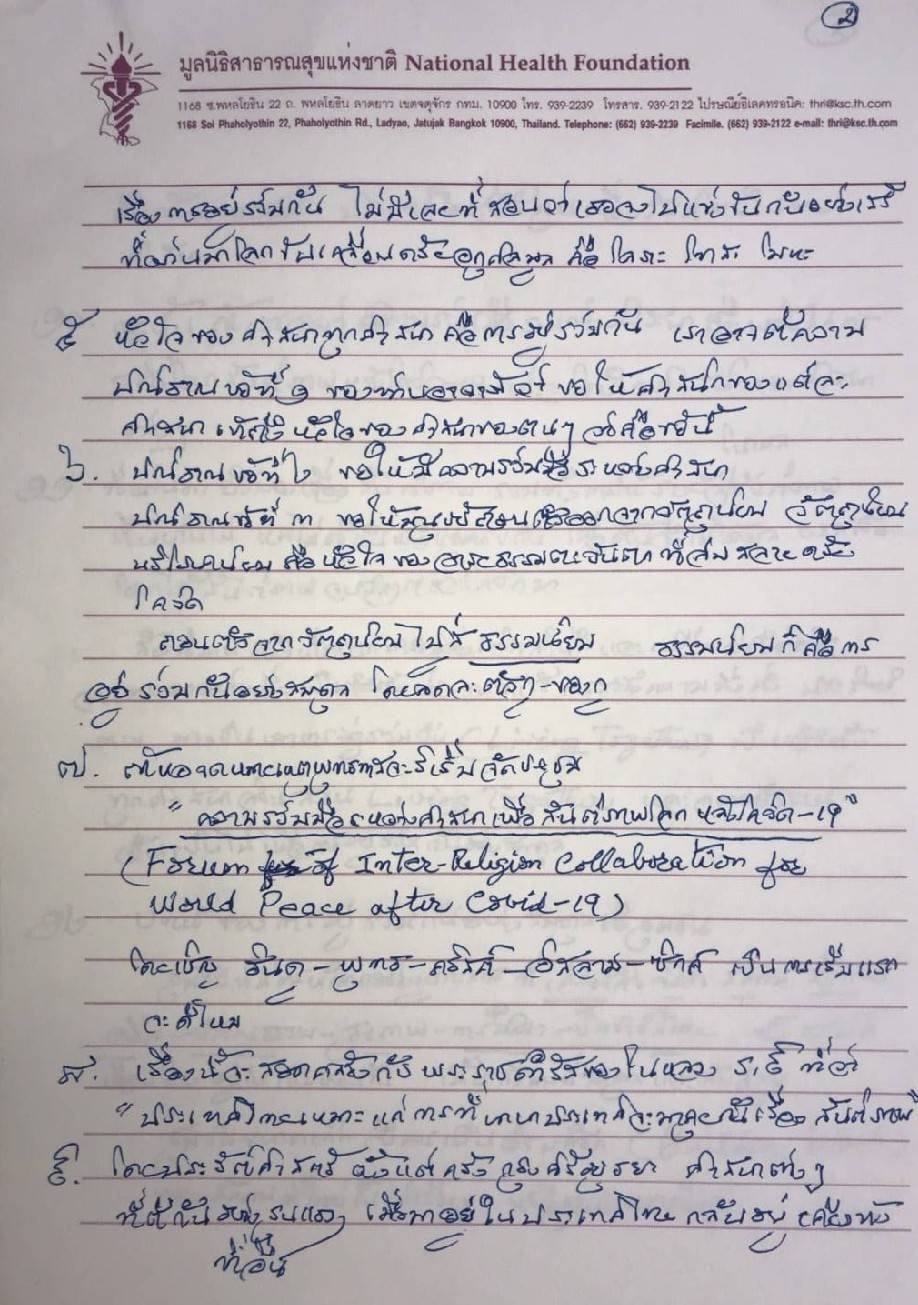 2
มูลนิธิสาธารณสุขแห่งชาติ National Health Foundation
1168 ซ.พหลโยธิน 22 ถ. พหลโยธิน ลาดยาว เขตจตุจักร กทม. 10900 โทร. 939-2239 โทรสาร. 939-2122 ไปรษณีย์อิเลคทรอนิค: thri@ksc.th.com
1168 Soi Phaholyothin 22, Phaholyothin Rd., Ladyao, Jatujak Bangkok 10900, Thailand. Telephone: (662) 939-2239 Facimile. (662) 939-2122 e-mail: thri@ksc.th.com
เรื่องการอยู่ร่วมกัน ไม่มีเลยที่สอนว่าเธอจงไปแข่งขันกันอย่างเสรี
ที่ขับเคลื่อนด้วยอกุศลมูล คือ โลภะ โทสะ โมหะ
๕ หัวใจของศาสนาทุกศาสนา คือการอยู่ร่วมกัน เราอาจตีความ
ปณิธานข้อที่ ๑ ของท่านอาจารย์ว่า ขอให้ศาสนิกของแต่ละ
ศาสนา เข้าถึงหัวใจของศาสนาของตนๆ ก็คือข้อนี้
๖. ปณิธานข้อที่ ๒ ขอให้มีความร่วมมือระหว่างศาสนา
ปณิธานข้อที่ ๓ ขอให้มนุษย์ถอนตัวออกจากวัตถุนิยม วัตถุนิยม
บริโภคนิยม คือ หัวใจของอารยธรรมตะวันตก ที่ล่มสลายด้วย
โควิด
ถอนตัวจากวัตถุนิยม ไปสู่ ธรรมนิยม ธรรมนิยมก็คือการ
อยู่ร่วมกันอย่างสมดุล โดยลดละตัวกู-ของกู
๗. ถ้าหอจดหมายเหตุพุทธทาสจะริเริ่มจัดประชุม
"ความร่วมมือระหว่างศาสนาเพื่อสันติภาพโลก หลังโควิด-19"
(Forum of Inter-Religion Collaboration for
World Peace after Covid-19)
โดยเชิญ ฮินดู-พุทธ-คริสต์-อิสลาม-ซิกส์ เป็นการเริ่มแรก
จะดีไหม
๘. เรื่องนี้จะสอดคล้องกับพระราชดำริของในหลวง ร.๙ ที่ว่า
"ประเทศไทยเหมาะแก่การที่นานาประเทศจะมาคุยกันเรื่องสันติภาพ"
๙. โดยประวัติศาสตร์ ตั้งแต่ครั้งกรุงศรีอยุธยา ศาสนาต่างๆ
ที่ตีกันอย่างรุนแรง เมื่อมาอยู่ในประเทศไทย กลับอยู่
ที่อื่น